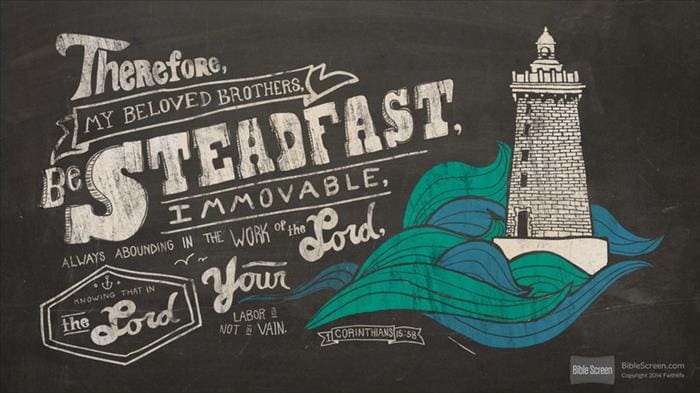 Therefore,
MY BELOVED BROTHERS,
Be STEADFAST,
IMMOVABLE,
ALWAYS ABOUNDING IN THE WORK OF the Lord,
KNOWING THAT IN
the Lord
Your
LABOR IS
NOT IN VAIN.
1 CORINTHIANS 15:58
Bible Screen
BibleScreen.com
Copyright 2014 Faithlife